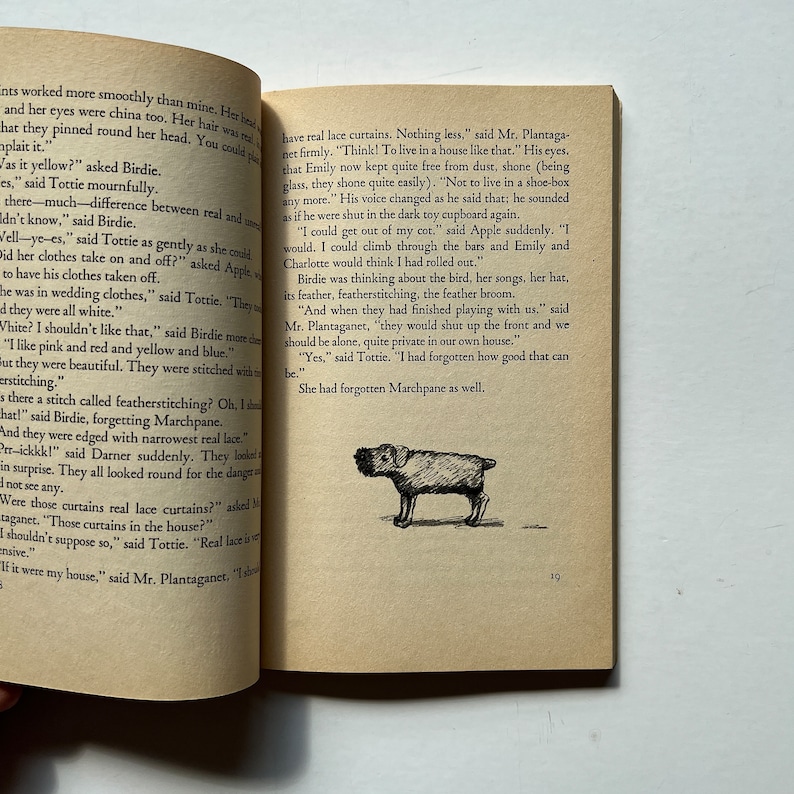 ints worked more smoothly than mine. Her head
and her eyes were china too. Her hair was real,
that they pinned round her head. You could
nplait it."
Was it yellow?" asked Birdie.
es," said Tottie mournfully.
there—much—difference between real and
ldn't know," said Birdie.
Well—ye-es," said Tottie as gently as she could.
Did her clothes take on and off?" asked Apple,
to have his clothes taken off.
he was in wedding clothes," said Tottie. "They
d they were all white."
White? I shouldn't like that," said Birdie more
"I like pink and red and yellow and blue."
But they were beautiful. They were stitched with
erstitching."
s there a stitch called featherstitching? Oh, I
that!" said Birdie, forgetting Marchpane.
And they were edged with narrowest real lace."
Prr-ickkk!" said Darner suddenly. They looked
in surprise. They all looked round for the danger
d not see any.
Were those curtains real lace curtains?" asked
taganet. "Those curtains in the house?"
I shouldn't suppose so," said Tottie. "Real lace is
ensive."
"If it were my house," said Mr. Plantaganet, "I
8
have real lace curtains. Nothing less," said Mr. Plantaga-
net firmly. "Think! To live in a house like that." His eyes,
that Emily now kept quite free from dust, shone (being
glass, they shone quite easily). "Not to live in a shoe-box
any more." His voice changed as he said that; he sounded
as if he were shut in the dark toy cupboard again.
"I could get out of my cot," said Apple suddenly. "I
would. I could climb through the bars and Emily and
Charlotte would think I had rolled out."
Birdie was thinking about the bird, her songs, her hat,
its feather, featherstitching, the feather broom.
"And when they had finished playing with us," said
Mr. Plantaganet, "they would shut up the front and we
should be alone, quite private in our own house."
"Yes," said Tottie. "I had forgotten how good that can
be."
She had forgotten Marchpane as well.
19